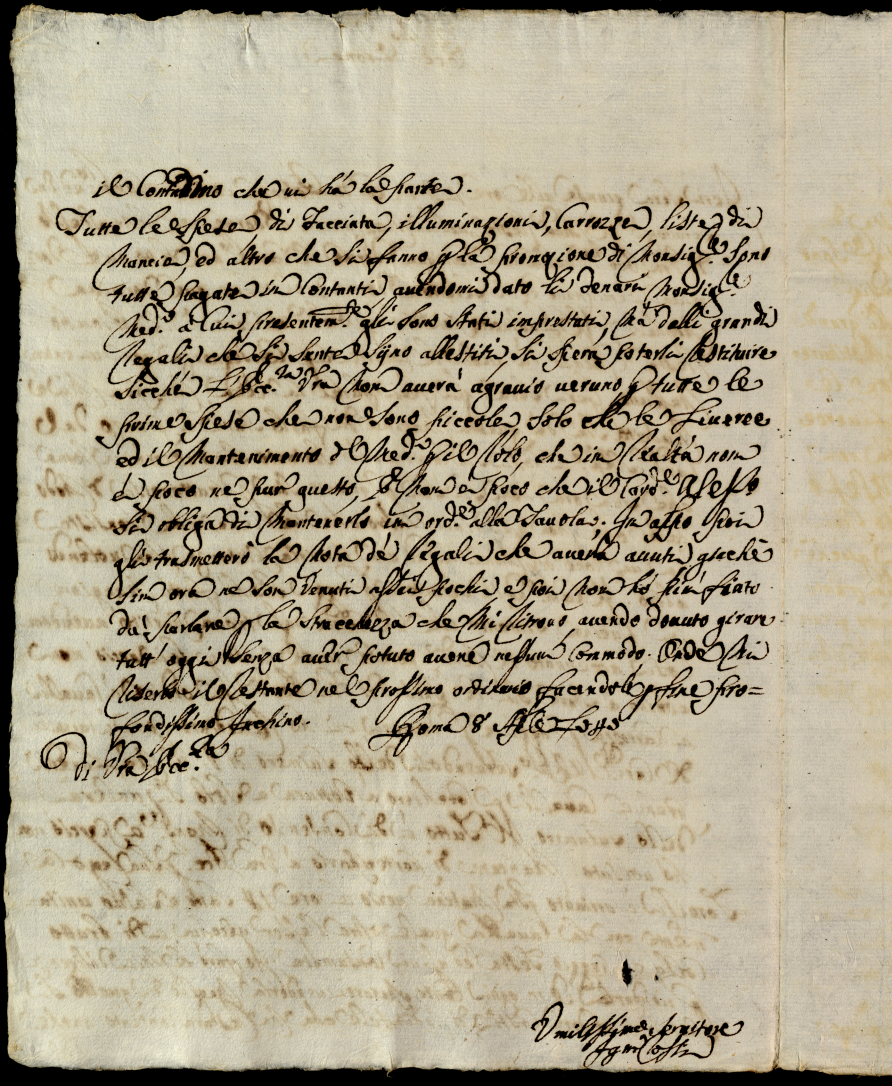 il Contadino che vi há la parte.
Tutte le Spese di Facciata, illuminazioni, Carrozze, liste di
Mancie, ed altro che si fanno p la promozione di Monsig.re Sono
tutte pagate in Contanti avendomi dato li denari Monsig.re
Med.o a lui presentem.te gli Sono Stati imprestati, Má dalli grandi
Regali che Si Sente Sijno allestiti Si Spera poterli Restituire
Sicché l'Ecc.za Vra Non averá agravio veruno p tutte le
prime Spese che non Sono piccole, Solo che le Livree
ed il Mantenimento del Med.o p il Rolo, che in Realtá non
é poco ne pur questo, Non é poco che il Card.le
Si obliga di Mantenerlo in ord.e alla Tavola. In apso poi
gli trasmetteró la Nota de Regali che averá avuti giaché
Sin ora ne Son Venuti assai pochi, e poi Non hó piú fiato
da parlare p la Stracchezza che Mi Ritrovo avendo dovuto girare
tutt' oggi Senza aver potuto avere nessun Commodo. Onde Mi
Riserbo il Restante nel prossimo ordinario facendole p fine pro=
fondissimo Inchino. Roma 8
di Vra Ecc.za
Umilissimo Servitore